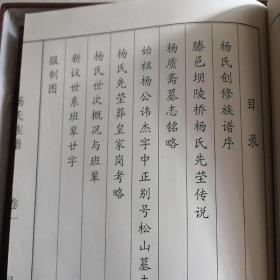 目录
杨氏创修族谱序
滕邑坝陵桥杨氏先茔传说
杨质斋墓志铭略
始祖杨公讳杰字中正别号松山墓志
杨氏先茔葬皇家岗考略
杨氏世次概况与班辈
新议世系班辈廿字
服制图
杨氏族谱
卷一